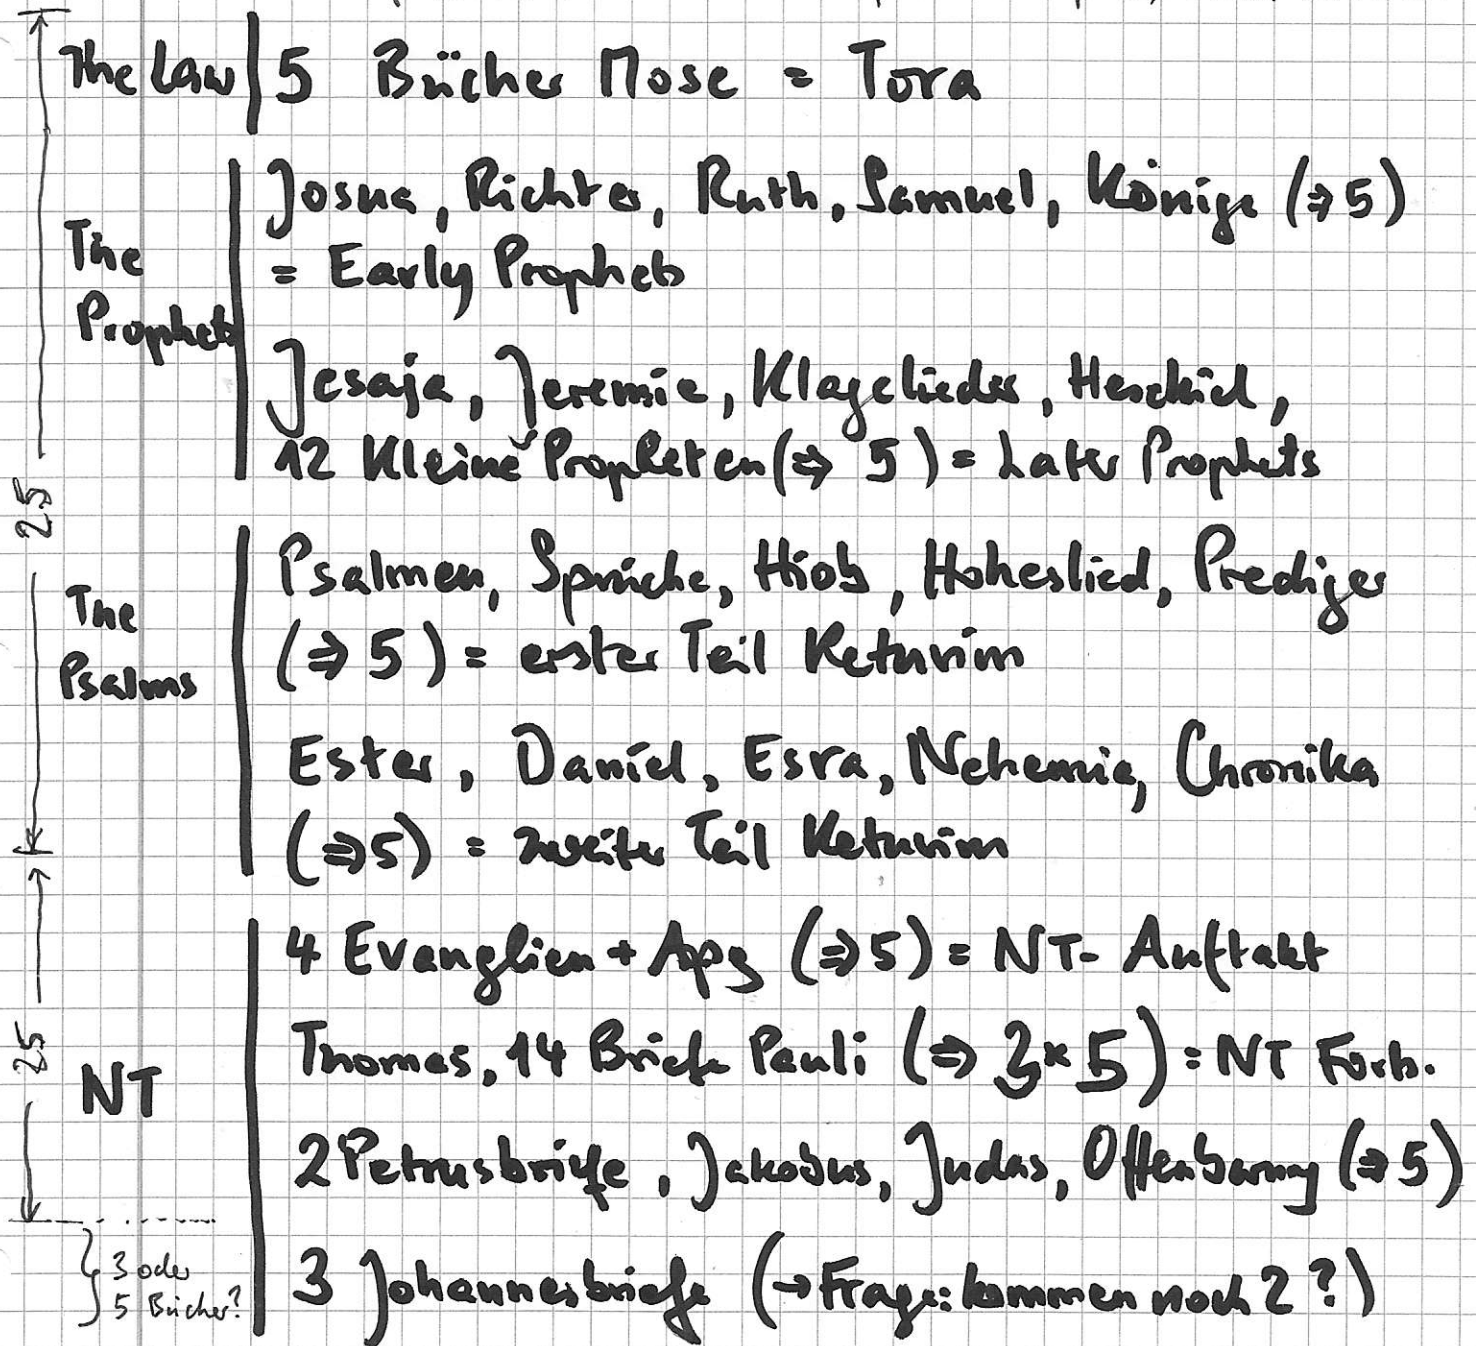 The Law | 5 Bücher Mose = Tora
Josua, Richter, Ruth, Samuel, Könige (⇒ 5)
= Early Prophets
The
Prophets
Jesaja, Jeremia, Klagelieder, Hesekiel,
12 Kleine Propheten (⇒ 5) = Later Prophets
25
Psalmen, Sprüche, Hiob, Hoheslied, Prediger
(⇒ 5) = erster Teil Ketuvim
The
Psalms
Ester, Daniel, Esra, Nehemia, Chronika
(⇒ 5) = zweiter Teil Ketuvim
4 Evanglien + Apg (⇒ 5) = NT-Auftakt
Thomas, 14 Briefe Pauli (⇒ 3 × 5) = NT Forts.
25
NT
2 Petrusbriefe, Jakobus, Judas, Offenbarung (⇒ 5)
3 oder
5 Bücher?
3 Johannesbriefe (→ Frage: kommen noch 2?)